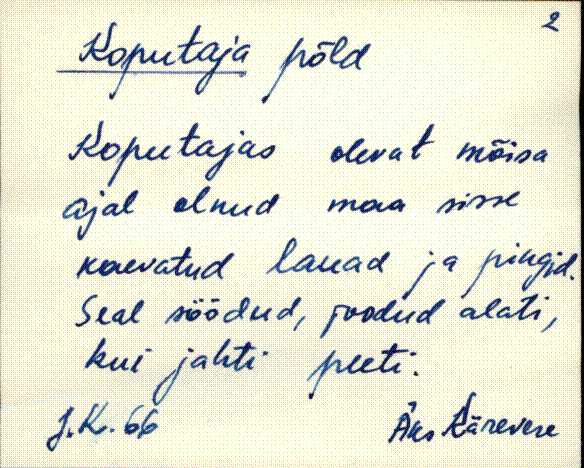 2
Koputaja põld
Koputajas olevat mõisa
ajal olnud maa sisse
kaevatud lauad ja pingid.
Seal söödud, joodud alati,
kui jahti peeti.
J.K. 66 Äks Kärevere